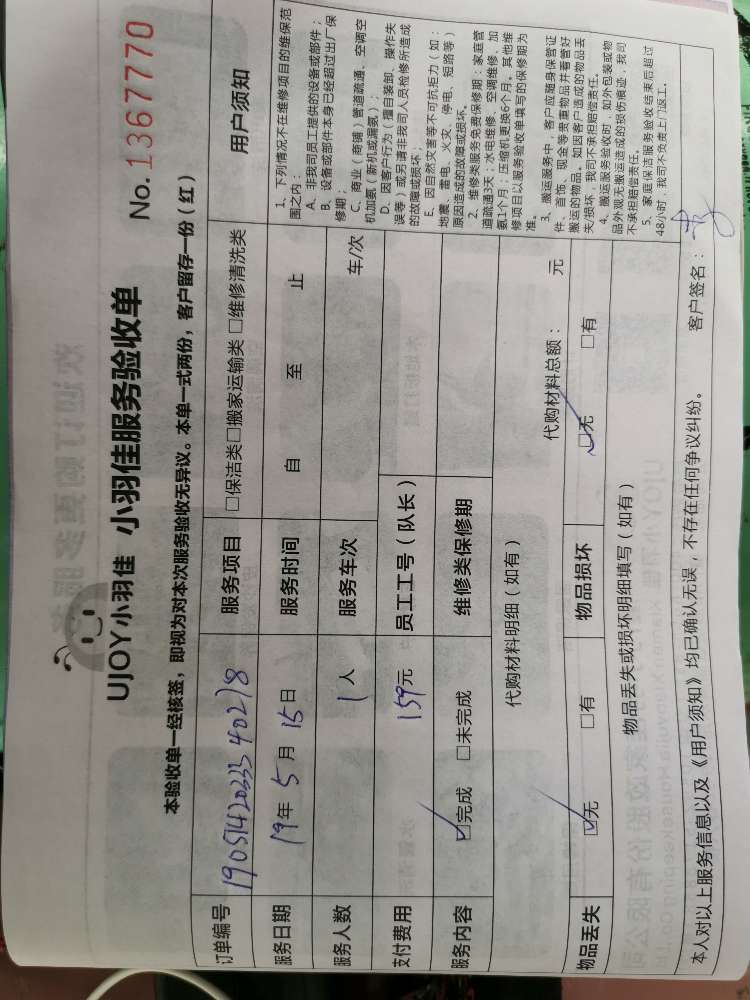 UJOY小羽佳 小羽佳服务验收单
No. 1367770
本验收单一经核签，即视为对本次服务验收无异议。本单一式两份，客户留存一份（红）
订单编号 190514203334 40278 服务项目 □保洁类□搬家运输类 □维修清洗类
服务日期 19年 5 月 15日 服务时间 自 至 止
服务人数 1人 服务车次 车/次
支付费用 159元 员工工号（队长）
服务内容 ☑完成 □未完成 维修类保修期
代购材料明细（如有） 代购材料总额： 元
物品丢失 ☑无 □有 物品损坏 ☑无 □有
物品丢失或损坏明细填写（如有）
用户须知
1、下列情况不在维修项目的维保范
围之内：
A、非我司员工提供的设备或部件；
B、设备或部件本身已经超过出厂保
修期；
C、商业（商铺）管道疏通、空调空
机加氨（新机或漏氨）；
D、因客户行为（擅自装卸、操作失
误等）或另请非我司人员检修所造成
的故障或损坏；
E、因自然灾害等不可抗拒力（如：
地震、雷电、火灾、停电、短路等）
原因造成的故障或损坏。
2、维修类服务免费保修期：家庭管
道疏通3天；水电维修、空调维修、加
氨1个月；压缩机更换6个月。其他维
修项目以服务验收单填写的保修期为
准。
3、搬运服务中，客户应随身保管证
件、首饰、现金等贵重物品并看管好
搬运的物品。如因客户造成的物品丢
失/损坏，我司不承担赔偿责任。
4、搬运服务验收时，如外包装或物
品外观无搬运造成的损伤痕迹，我司
不承担赔偿责任。
5、家庭保洁服务验收结束后超过
48小时，我司不负责上门返工。
本人对以上服务信息以及《用户须知》均已确认无误，不存在任何争议纠纷。 客户签名：